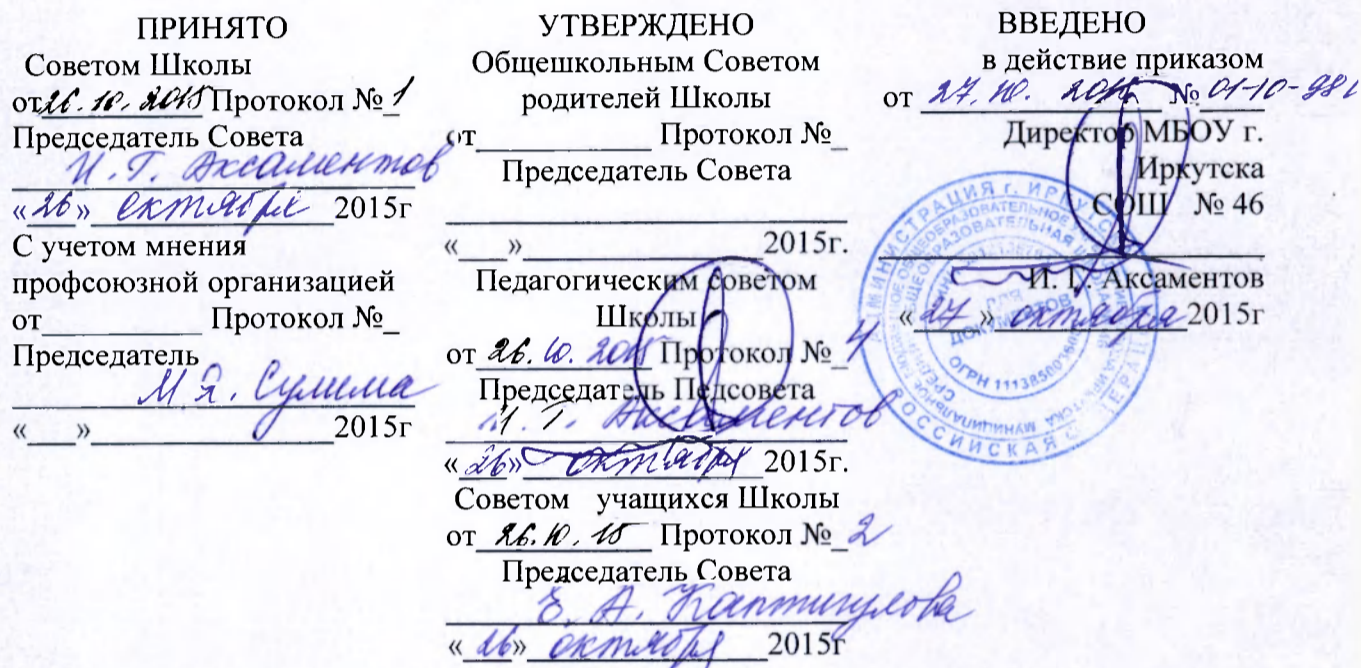 ПРИНЯТО
Советом Школы
от 26.10.2015 Протокол № 1
Председатель Совета
И. Г. Аксаментов
«26» октября 2015г
С учетом мнения
профсоюзной организацией
от__________ Протокол №_
Председатель
М.Я. Сулима
«___»__________2015г
УТВЕРЖДЕНО
Общешкольным Советом
родителей Школы
от__________ Протокол №_
Председатель Совета
«___»__________2015г.
Педагогическим советом
Школы
от 26.10.2015 Протокол № 4
Председатель Педсовета
И. Г. Аксаментов
«26» октября 2015г.
Советом учащихся Школы
от 26.10.15 Протокол № 2
Председатель Совета
Е. А.
«26» октября 2015г
ВВЕДЕНО
в действие приказом
от 27.10. 2015 № 01-10-98
Директор МБОУ г.
Иркутска
СОШ № 46
И. Г. Аксаментов
«27» октября 2015г
АДМИНИСТРАЦИЯ г. ИРКУТСКА
РОССИЙСКАЯ ФЕДЕРАЦИЯ
ДЛЯ
ДОКУМЕНТОВ
ОГРН